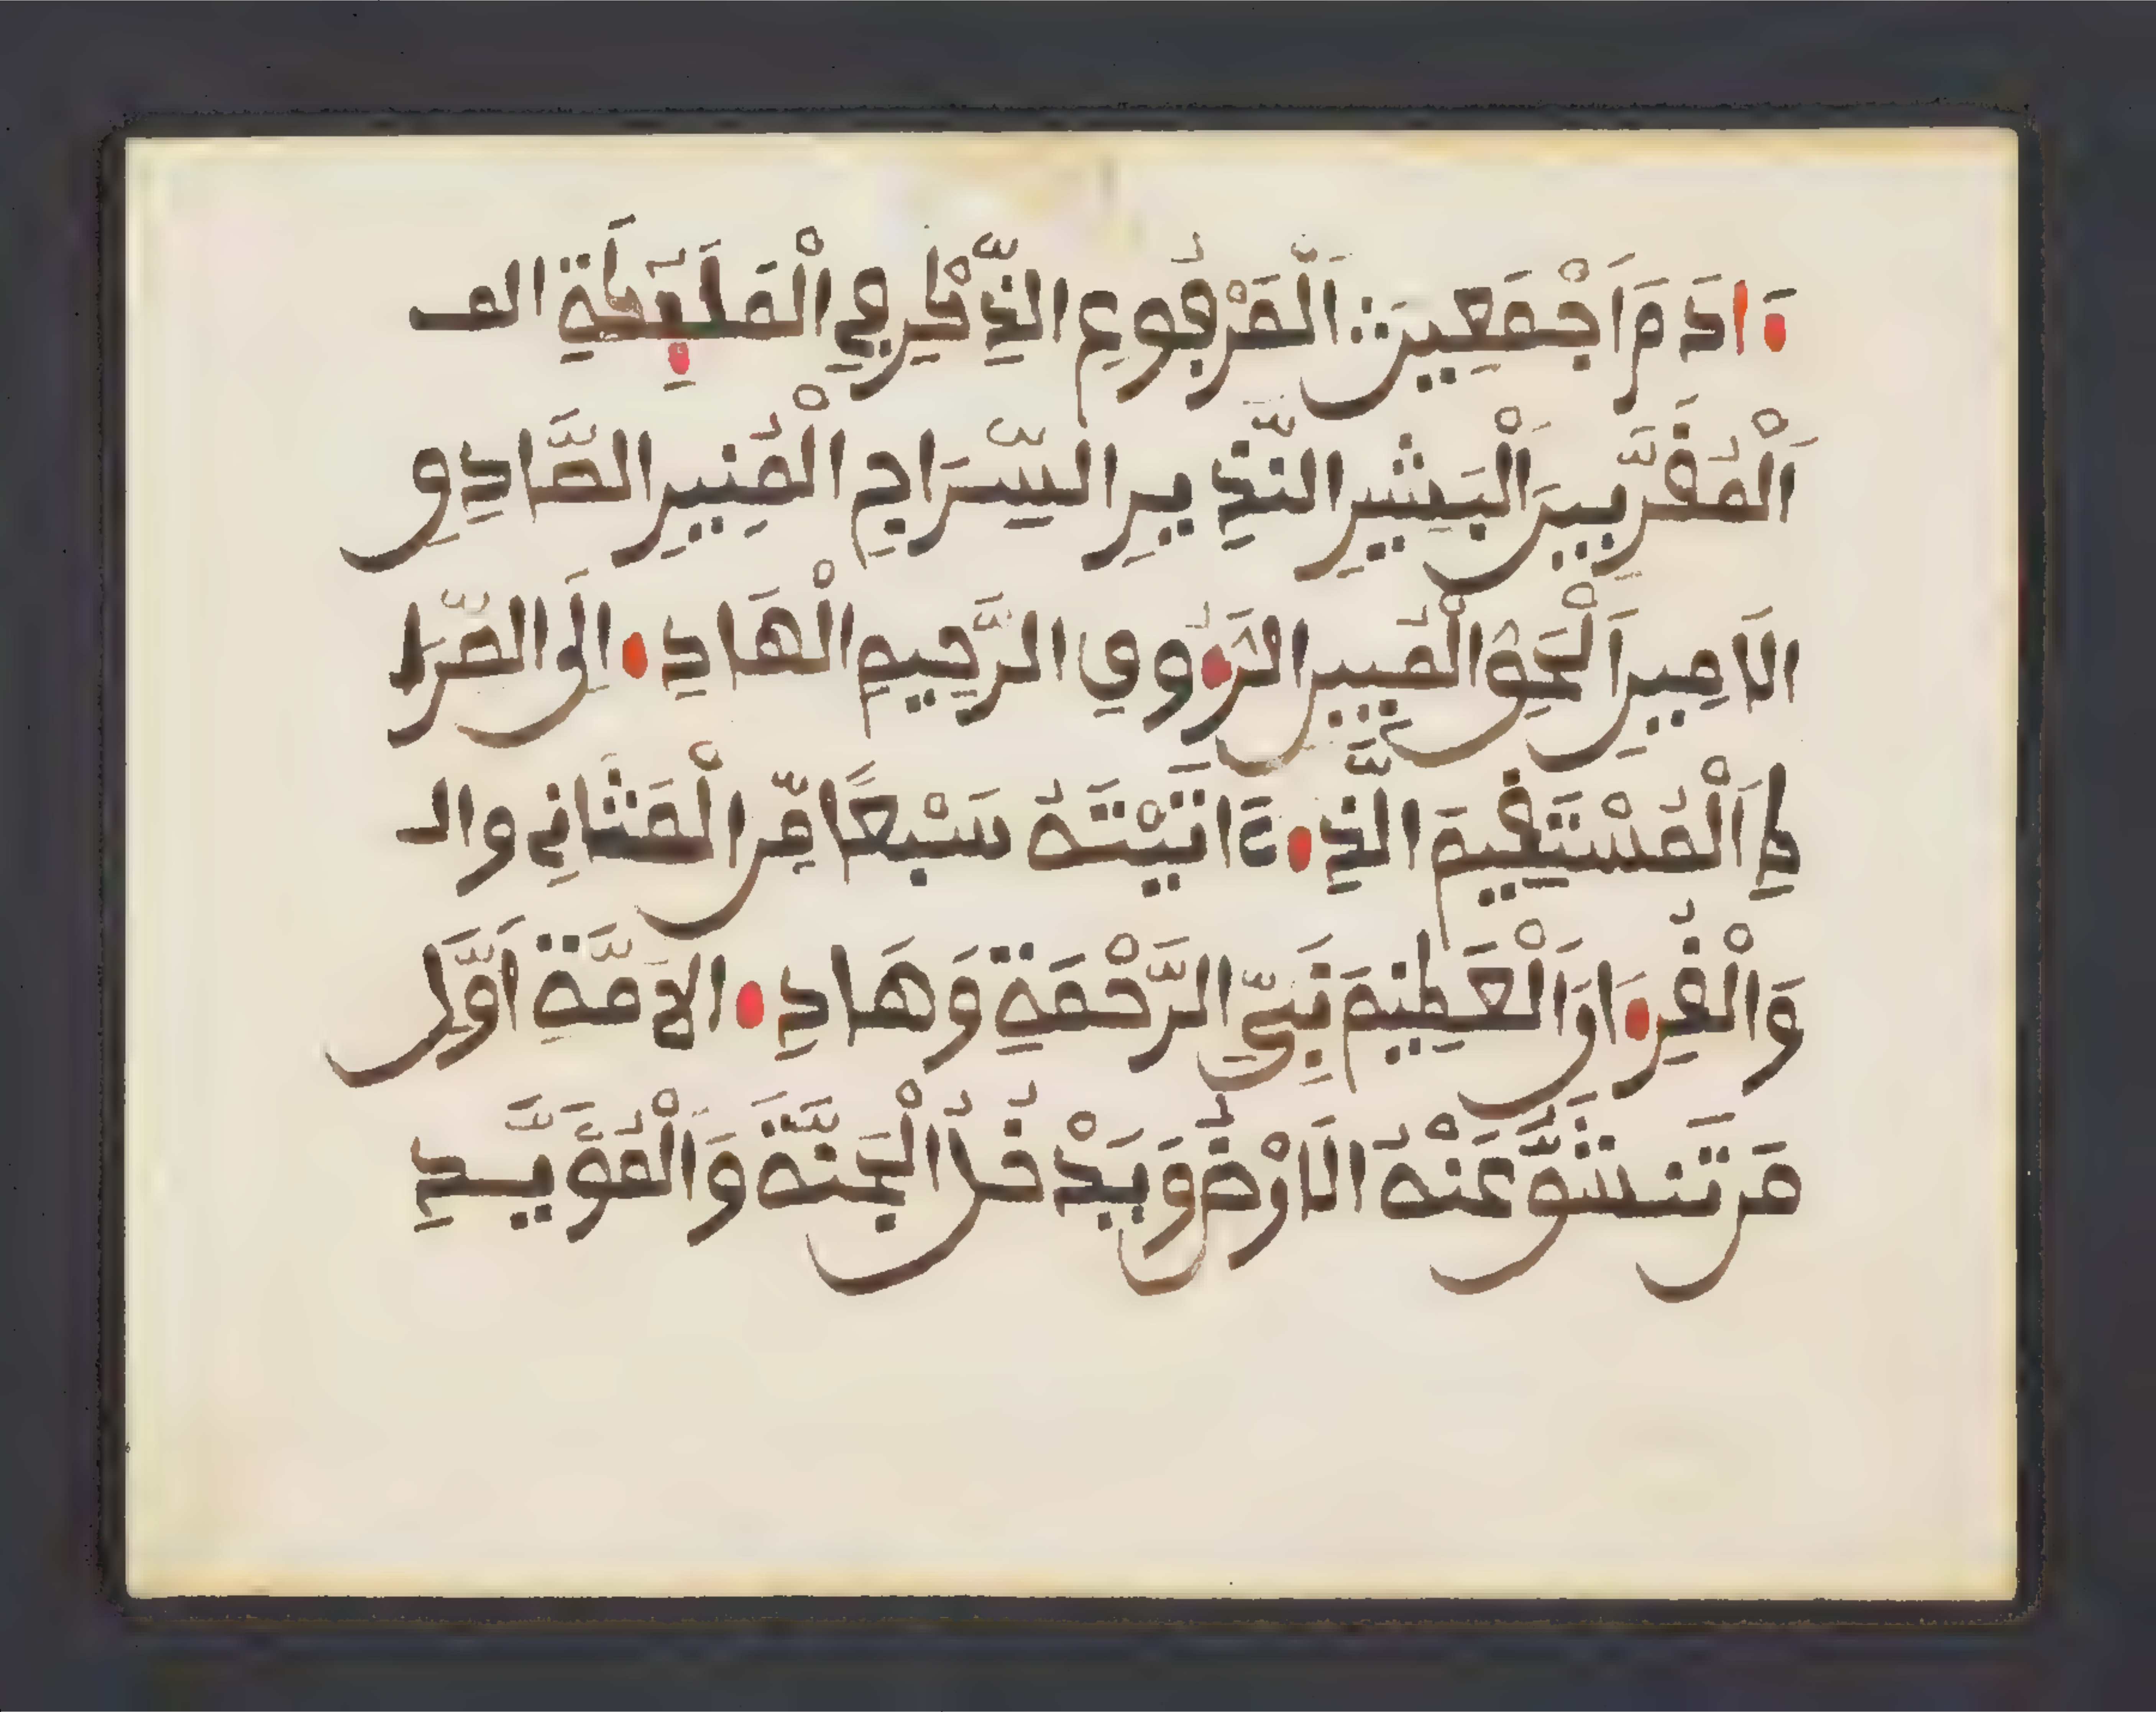 ءَادَمَ أَجْمَعِينَ اَلْمَرْفُوعِ الذِّكْرِ فِي الْمَلَٰٓئِكَةِ الْمـ
اَلْمُقَرَّبِينَ اَلْبَشِيرِ النَّذِيرِ السِّرَاجِ الْمُنِيرِ الصَّادِقِ
الَامِينِ اَلْحَقِّ الْمُبِينِ الرَّءُوفِ الرَّحِيمِ الْهَادِے إِلَى الصِّرَا
طِ اَلْمُسْتَقِيمَ الَّذِے ءَاتَيْتَهُ سَبْعًا مِّنَ الْمَثَانِي وَالـ
وَالْقُرِءَانَ اَلْعَظِيمَ نَبِيِّ الرَّحْمَةِ وَهَادِے الاُمَّةِ أَوَّلَ
مَن تَنشَقُّ عَنْهُ الَارْضُ وَيَدْخُلُ الْجَنَّةَ وَالْمُؤَيَّدِ